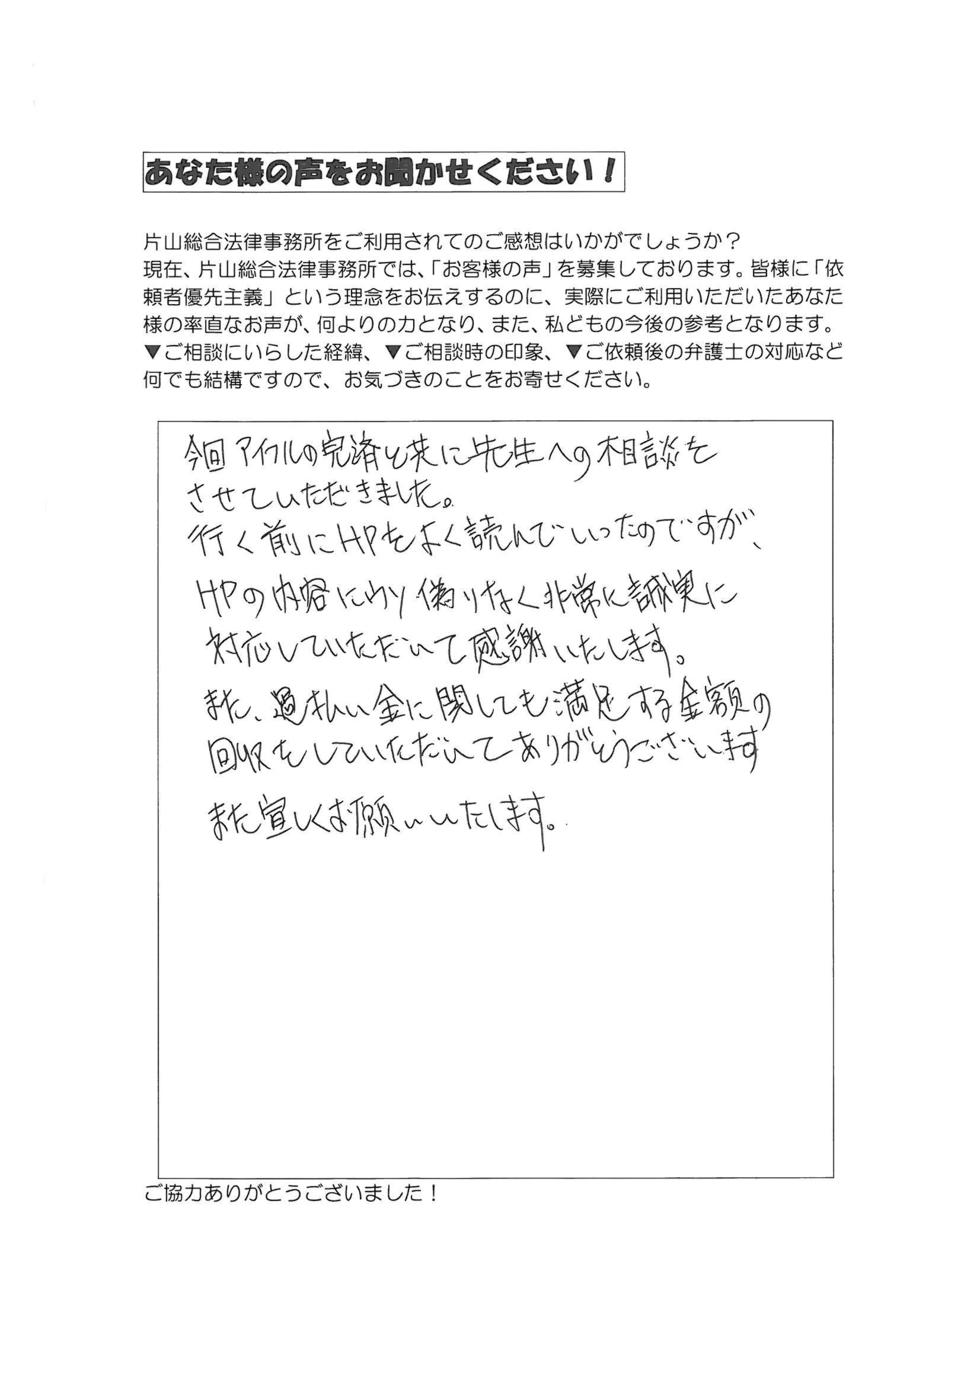 あなた様の声をお聞かせください！
片山総合法律事務所をご利用されてのご感想はいかがでしょうか？
現在、片山総合法律事務所では、「お客様の声」を募集しております。皆様に「依
頼者優先主義」という理念をお伝えするのに、実際にご利用いただいたあなた
様の率直なお声が、何よりの力となり、また、私どもの今後の参考となります。
▼ご相談にいらした経緯、▼ご相談時の印象、▼ご依頼後の弁護士の対応など
何でも結構ですので、お気づきのことをお寄せください。
今回アイフルの完済と共に先生への相談を
させていただきました。
行く前にHPをよく読んでいったのですが、
HPの内容にウソ偽りなく非常に誠実に
対応していただいて感謝いたします。
また、過払い金に関しても満足する金額の
回収をしていただいてありがとうございます
また宜しくお願いいたします。
ご協力ありがとうございました！